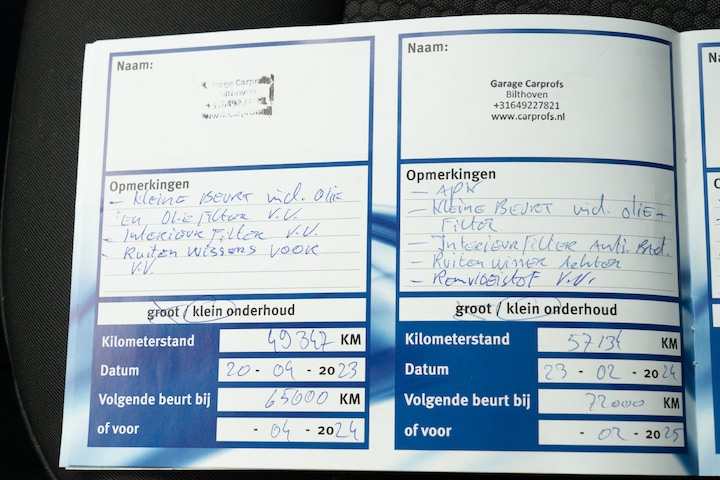 Naam:
Garage Carprofs
Bilthoven
+3164922
www.carprofs
Opmerkingen
- Kleine Beurt incl. olie
en oliefilter V.V.
- Interieurfilter V.V.
- Ruiten wissers voor
V.V.
groot / klein onderhoud
Kilometerstand 49347 KM
Datum 20 - 04 - 2023
Volgende beurt bij 65000 KM
of voor - 04 - 2024
Naam:
Garage Carprofs
Bilthoven
+31649227821
www.carprofs.nl
Opmerkingen
- APK
- Kleine Beurt incl. olie +
Filter
- Interieurfilter Anti. Bact.
- Ruitenwisser Achter
- Remvloeistof V.V.
groot / klein onderhoud
Kilometerstand 57134 KM
Datum 23 - 02 - 2024
Volgende beurt bij 72000 KM
of voor - 02 - 2025